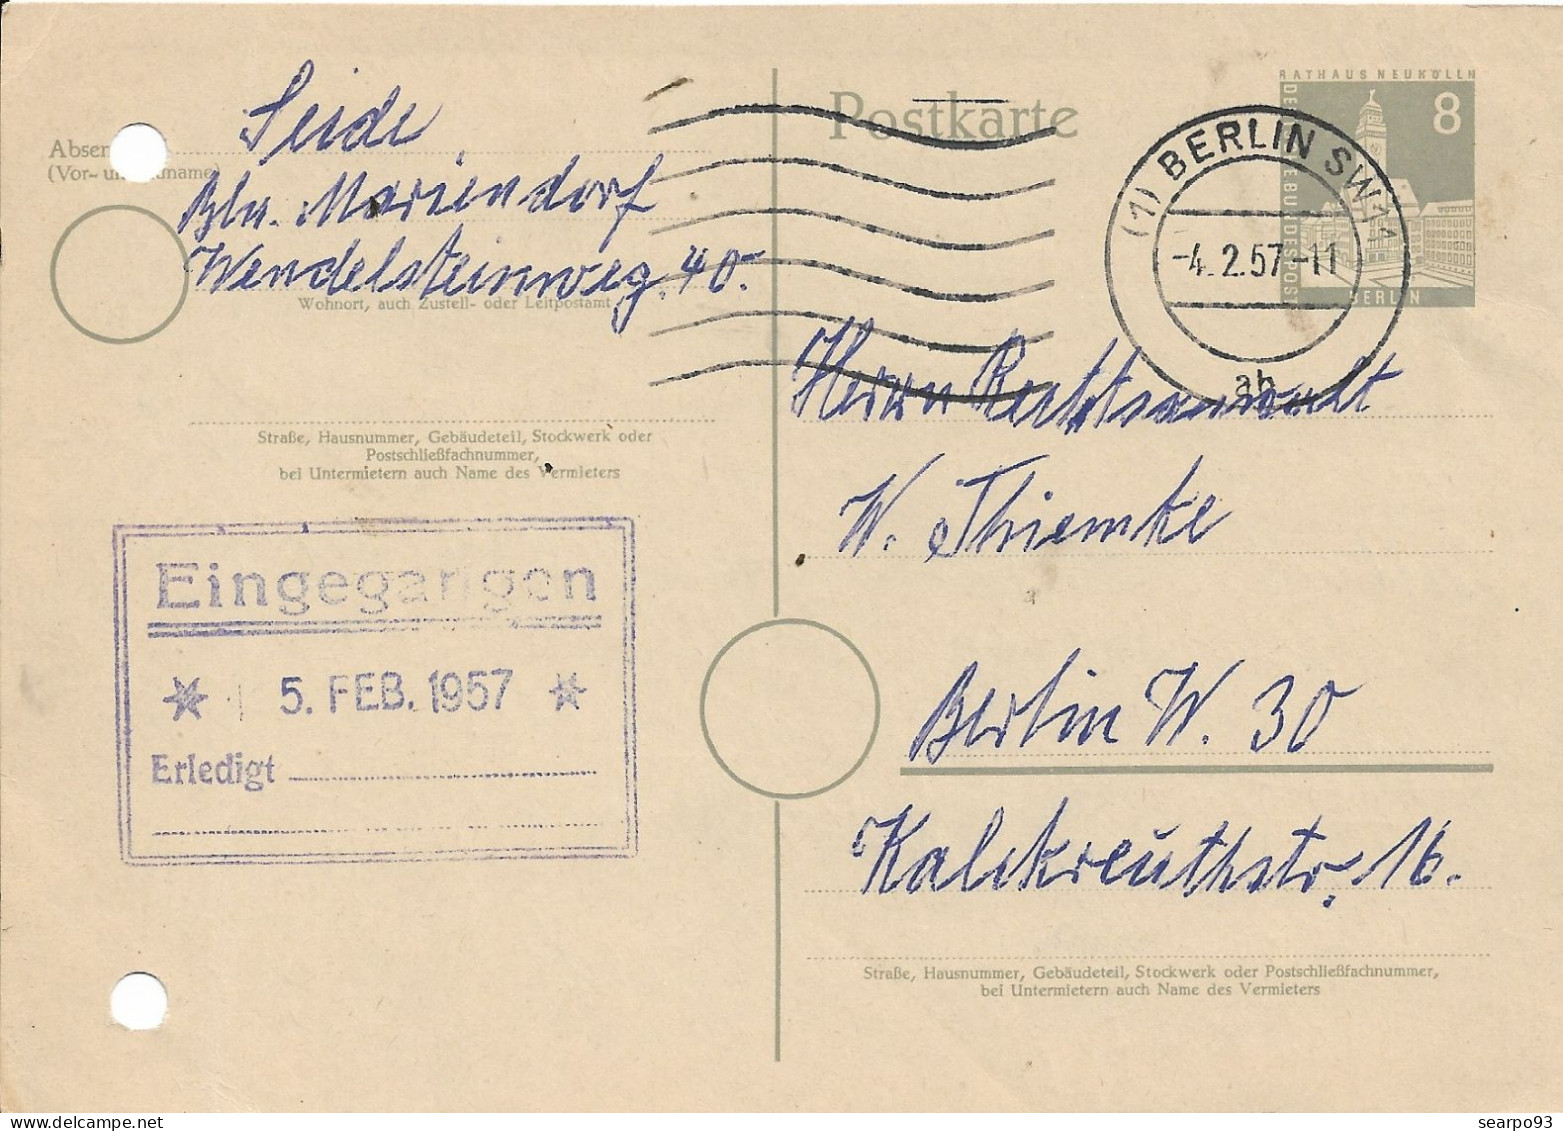 Seide
Absen
(Vor- un
name)
Bln. Mariendorf
Wendelsteinweg. 40.
Wohnort, auch Zustell- oder Leitpostamt
Straße, Hausnummer, Gebäudeteil, Stockwerk oder
Postschließfachnummer,
bei Untermietern auch Name des Vermieters
Eingegangen
5. FEB. 1957
Erledigt
Postkarte
RATHAUS NEUKÖLLN
8
DEUTSCHE BUNDESPOST
BERLIN
(1) BERLIN SW 11
-4.2.57-11
ab
Herrn Rechtsanwalt
W. Thiemke
Berlin W. 30
Kalckreuthstr. 16.
Straße, Hausnummer, Gebäudeteil, Stockwerk oder Postschließfachnummer,
bei Untermietern auch Name des Vermieters
searpo93